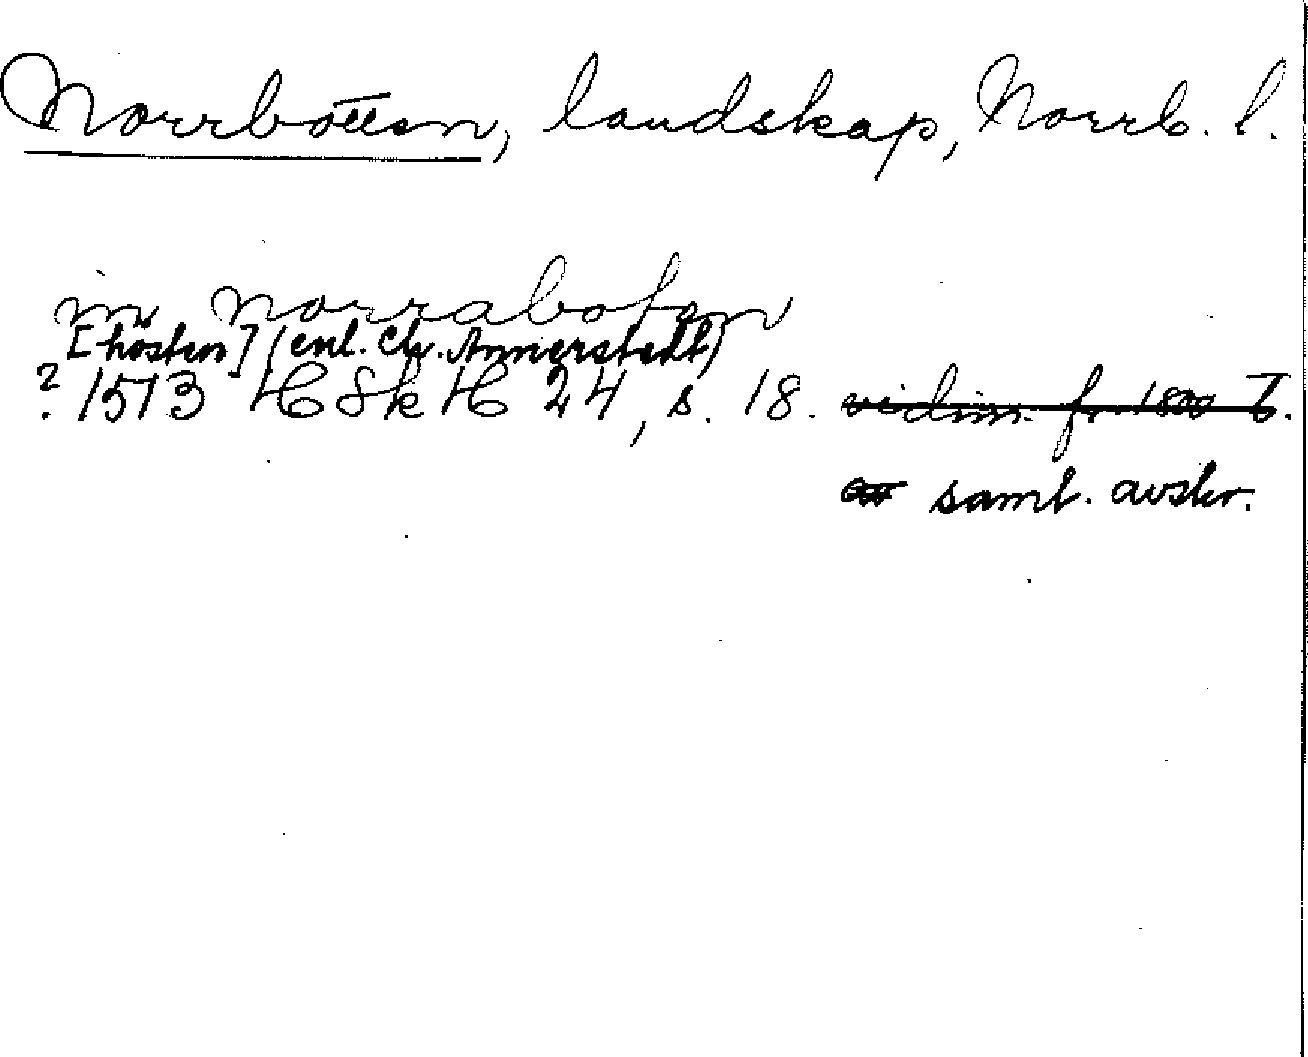 Norrbotten, landskap, Norrb. l.
in norraboten
[hösten] (enl. Cl. Annerstedt)
? 1573 HSkH 24, s. 18. vidim. f. 1800 T.
samt. avskr.